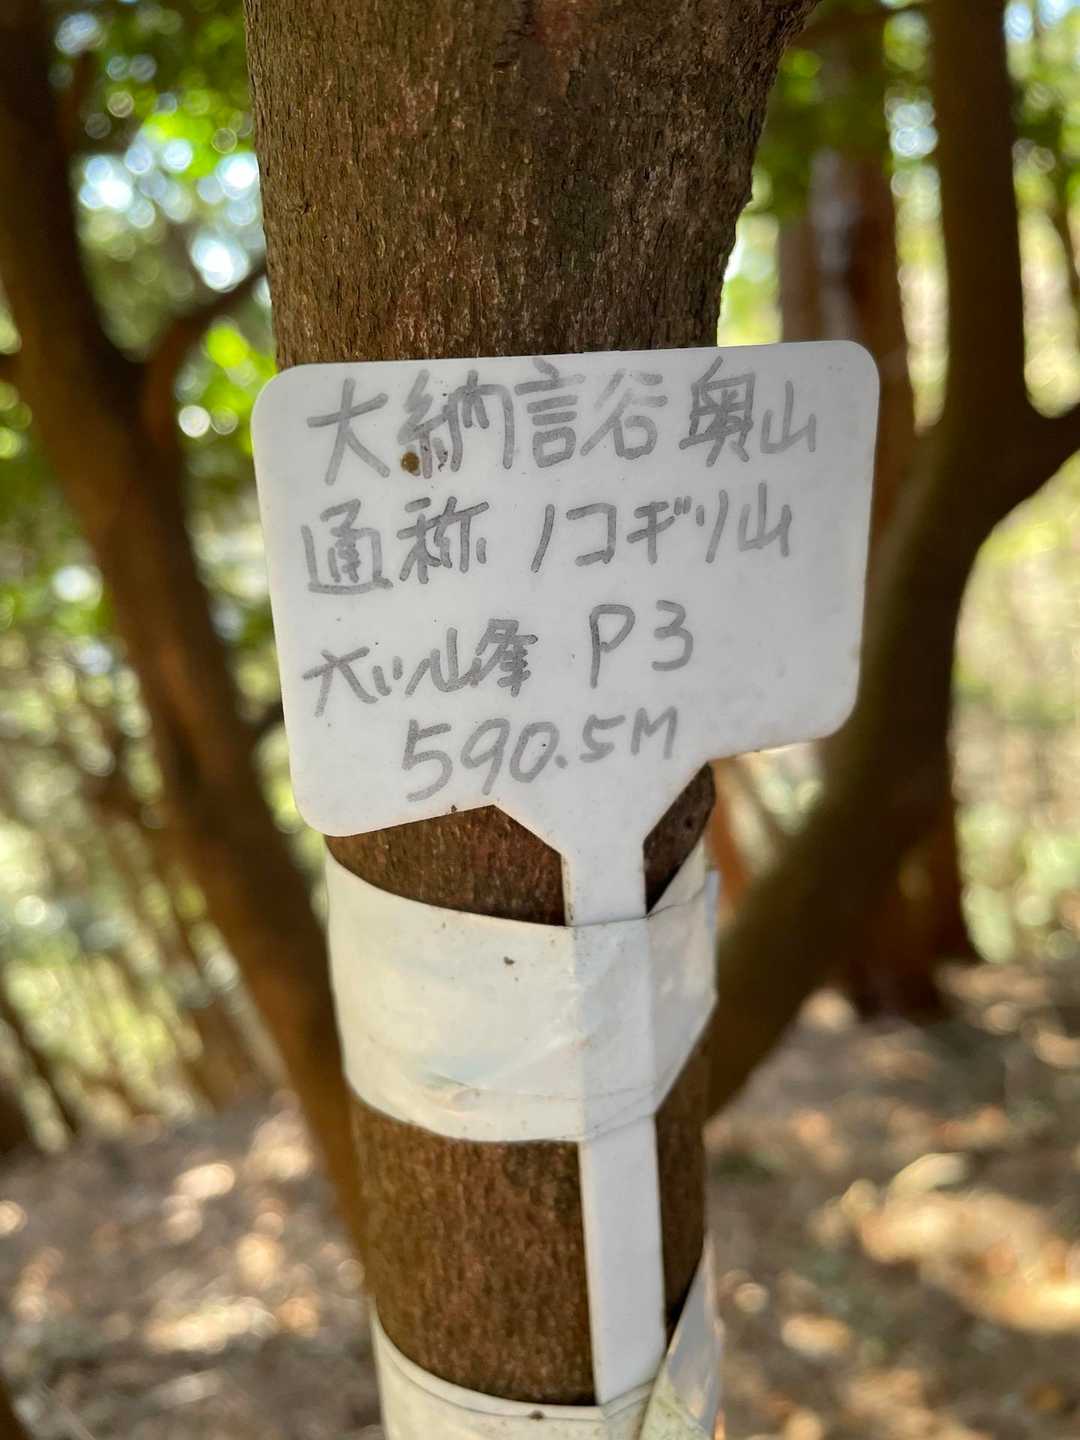 大納言谷奥山
通称 ノコギリ山
峰 P3
590.5M